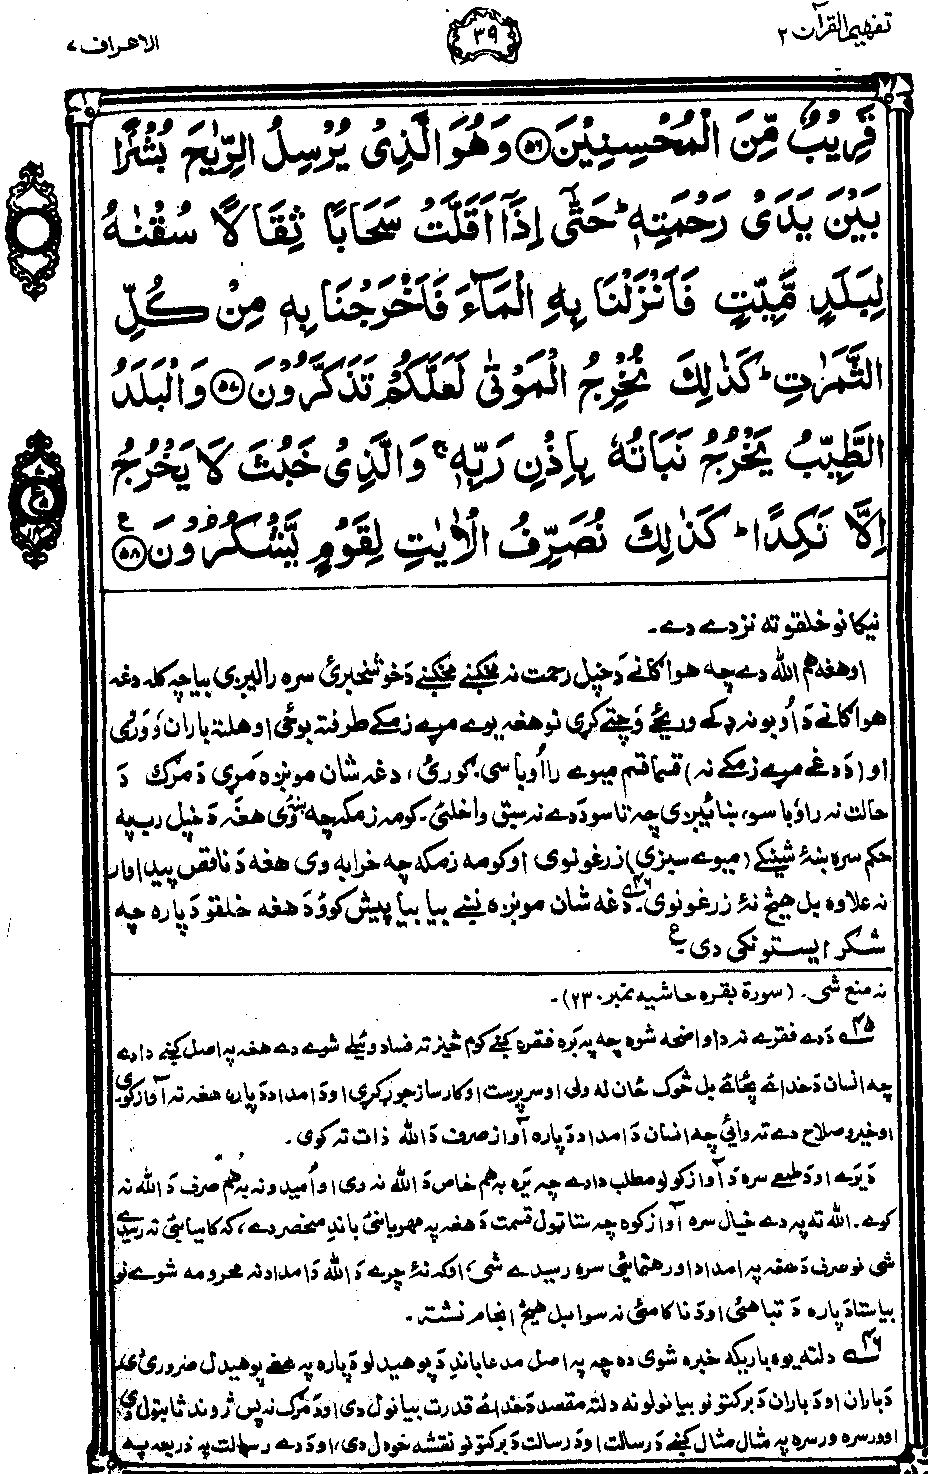 تفهیم القرآن ۲
۳۹
الاعراف ۷
قَرِيْبٌ مِّنَ الْمُحْسِنِيْنَ ﴿۵۶﴾ وَهُوَ الَّذِىْ يُرْسِلُ الرِّيٰحَ بُشْرًا
بَيْنَ يَدَىْ رَحْمَتِهٖ ؕ حَتّٰٓى اِذَاۤ اَقَلَّتْ سَحَابًا ثِقَالًا سُقْنٰهُ
لِبَلَدٍ مَّيِّتٍ فَاَنْزَلْنَا بِهِ الْمَآءَ فَاَخْرَجْنَا بِهٖ مِنْ كُلِّ
الثَّمَرٰتِ ؕ كَذٰلِكَ نُخْرِجُ الْمَوْتٰى لَعَلَّكُمْ تَذَكَّرُوْنَ ﴿۵۷﴾ وَالْبَلَدُ
الطَّيِّبُ يَخْرُجُ نَبَاتُهٗ بِاِذْنِ رَبِّهٖ ۚ وَالَّذِىْ خَبُثَ لَا يَخْرُجُ
اِلَّا نَكِدًا ؕ كَذٰلِكَ نُصَرِّفُ الْاٰيٰتِ لِقَوْمٍ يَّشْكُرُوْنَ ﴿۵۸﴾ ع
نیکانو خلقو ته نزدے دے۔
اوهغه هم الله دے چه هواګانے دَ خپل رحمت نه مخکښے مخکښے دَ خوشخبرئ سره رالیږی بیا چه کله دغه
هواګانے دَ اُوبو نه ډکے وریځے وچتے کړی نو هغه یوے مړے زمکے طرفته بوځی اوهلته باران وَوروی
او (دَ دغے مړے زمکے نه) قسما قسم میوے رااُوباسی. ګورئ، دغه شان مونږه مَړی دَ مَرګ دَ
حالت نه راوُباسو، ښائیږدی چه تاسو دَ دے نه سبق واخلئ۔ کومه زمکه چه ښه وی هغه دَ خپل رب په
حکم سره ښهٔ شینکے (میوے سبزی) زرغونوی اوکومه زمکه چه خرابه وی هغه دَ ناقص پیداوار
نه علاوه بل هیڅ نهٔ زرغونوی۔ ۴۶ دغه شان مونږه نښے بیا بیا پیش کوو دَ هغه خلقو دَ پاره چه
شکر ایستونکی دی۔ ع
نه منع شی۔ (سورة بقره حاشیه نمبر ۲۳۰)۔
۴۵ دَ دے فقرے نه دا واضحه شوه چه په بَره فقره کښے کوم څیز ته فساد وئیلے شوے دے هغه په اصل کښے دا دے
چه انسان دَ خدائے پځائے بل څوک ځان له ولی او سرپرست اوکارساز جوړ کړی او دَ امداد دَ پاره هغه ته آواز کوی
اوخیر وصلاح دے ته وائی چه انسان دَ امداد دَ پاره آواز صرف دَ الله ذات ته کوی۔
دَ یَرے او دَ طمعے سره دَ آواز کولو مطلب دا دے چه یَره به هم خاص دَ الله نه وی او اُمیدونه به هم صرف دَ الله نه
کوے۔ الله ته په دے خیال سره آواز کوه چه ستا ټول قسمت دَ هغه په مهربانئ باندِ منحصر دے، که کامیابئ ته رسیدے
شی نو صرف دَ هغه په امداد او رهنمائی سره رسیدے شی، اوکه نهٔ چرے دَ الله دَ امداد نه محرومه شوے نو
بیا ستا دَ پاره دَ تباهئی او دَ ناکامئی نه سوا بل هیڅ انجام نشته۔
۴۶ دلته یوه باریکه خبره شوی ده چه په اصل مدعا باندِ دَ پوهیدلو دَ پاره په هغے پوهیدل ضروری دی
دَ باران او دَ باران دَ برکتونو بیانولو نه دلته مقصد دَ خدائے قدرت بیانول دی او دَ مرګ نه پس ژوند ثابتول دی
اوورسره ورسره په مثال مثال کښے دَ رسالت او دَ رسالت دَ برکتونو نقشه خودل دی، او دَ دے رسالت په ذریعه په